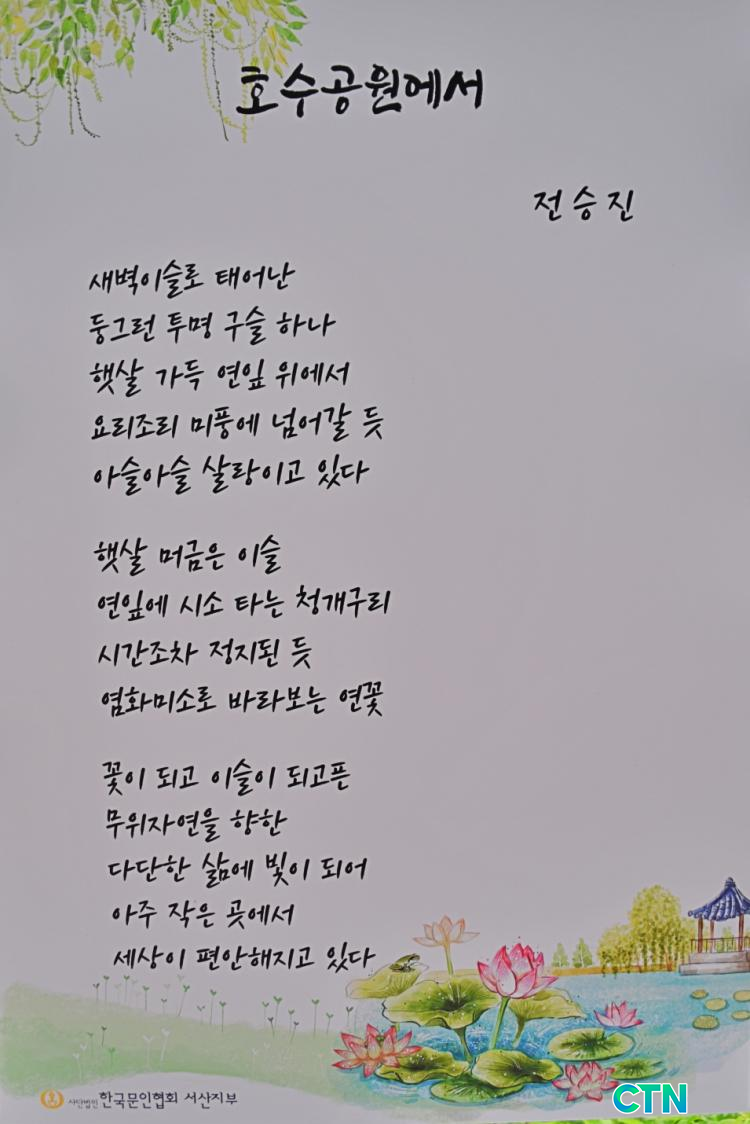 호수공원에서
전승진
새벽이슬로 태어난
둥그런 투명 구슬 하나
햇살 가득 연잎 위에서
요리조리 미풍에 넘어갈 듯
아슬아슬 살랑이고 있다
햇살 머금은 이슬
연잎에 시소 타는 청개구리
시간조차 정지된 듯
염화미소로 바라보는 연꽃
꽃이 되고 이슬이 되고픈
무위자연을 향한
다단한 삶에 빛이 되어
아주 작은 곳에서
세상이 편안해지고 있다
사단법인 한국문인협회 서산지부
CTN